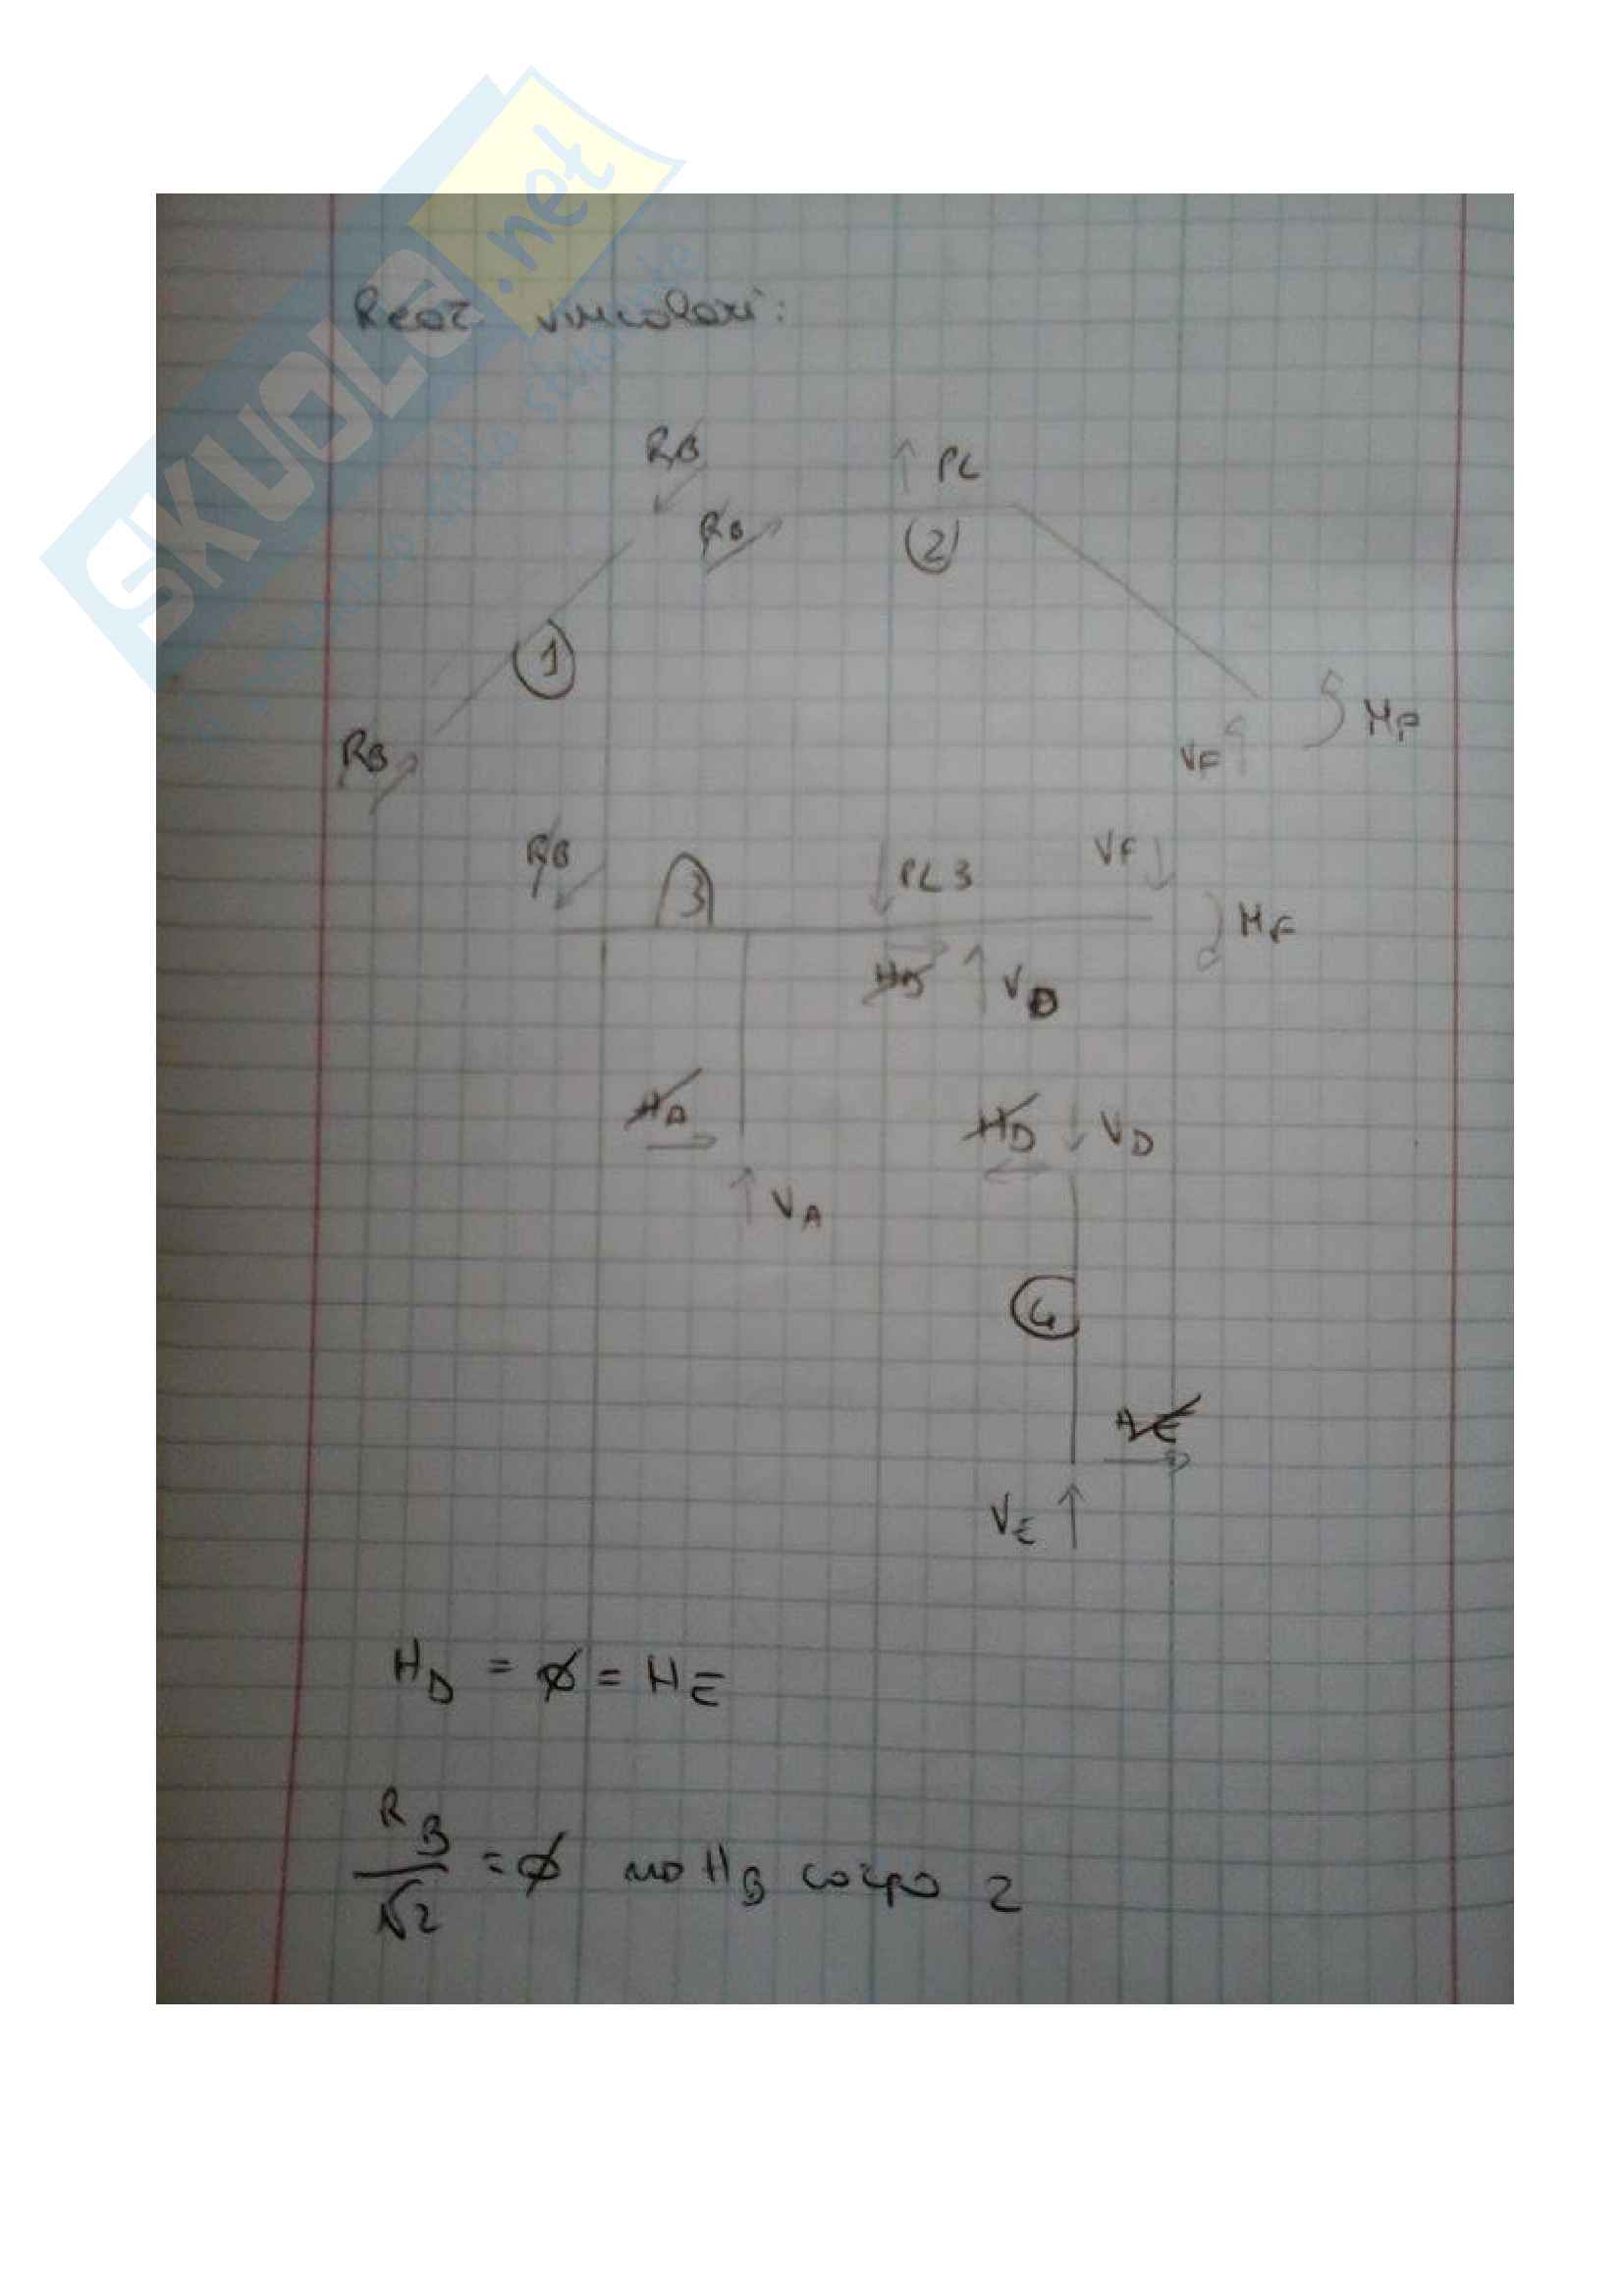 SKUOLA.net
Reaz vincolari:
RB
PL
RB
(2)
1
RB
VF
MF
RB
3
PL3
VF
MF
HD
VD
HA
HD
VD
VA
4
HE
VE
HD = ∅ = HE
RB/√2 = ∅ no HB corpo 2